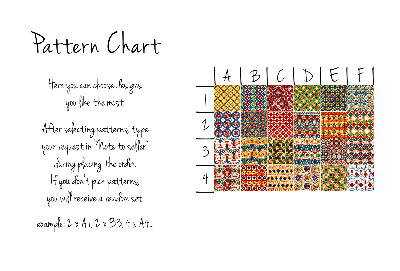 Pattern Chart
Here you can choose designs
you like the most.
After selecting patterns, type
your request in "Note to seller"
during placing the order.
If you don't pick patterns,
you will receive a random set.
example: 2 x A1, 2 x B3, 4 x A4.
A B C D E F
1
2
3
4